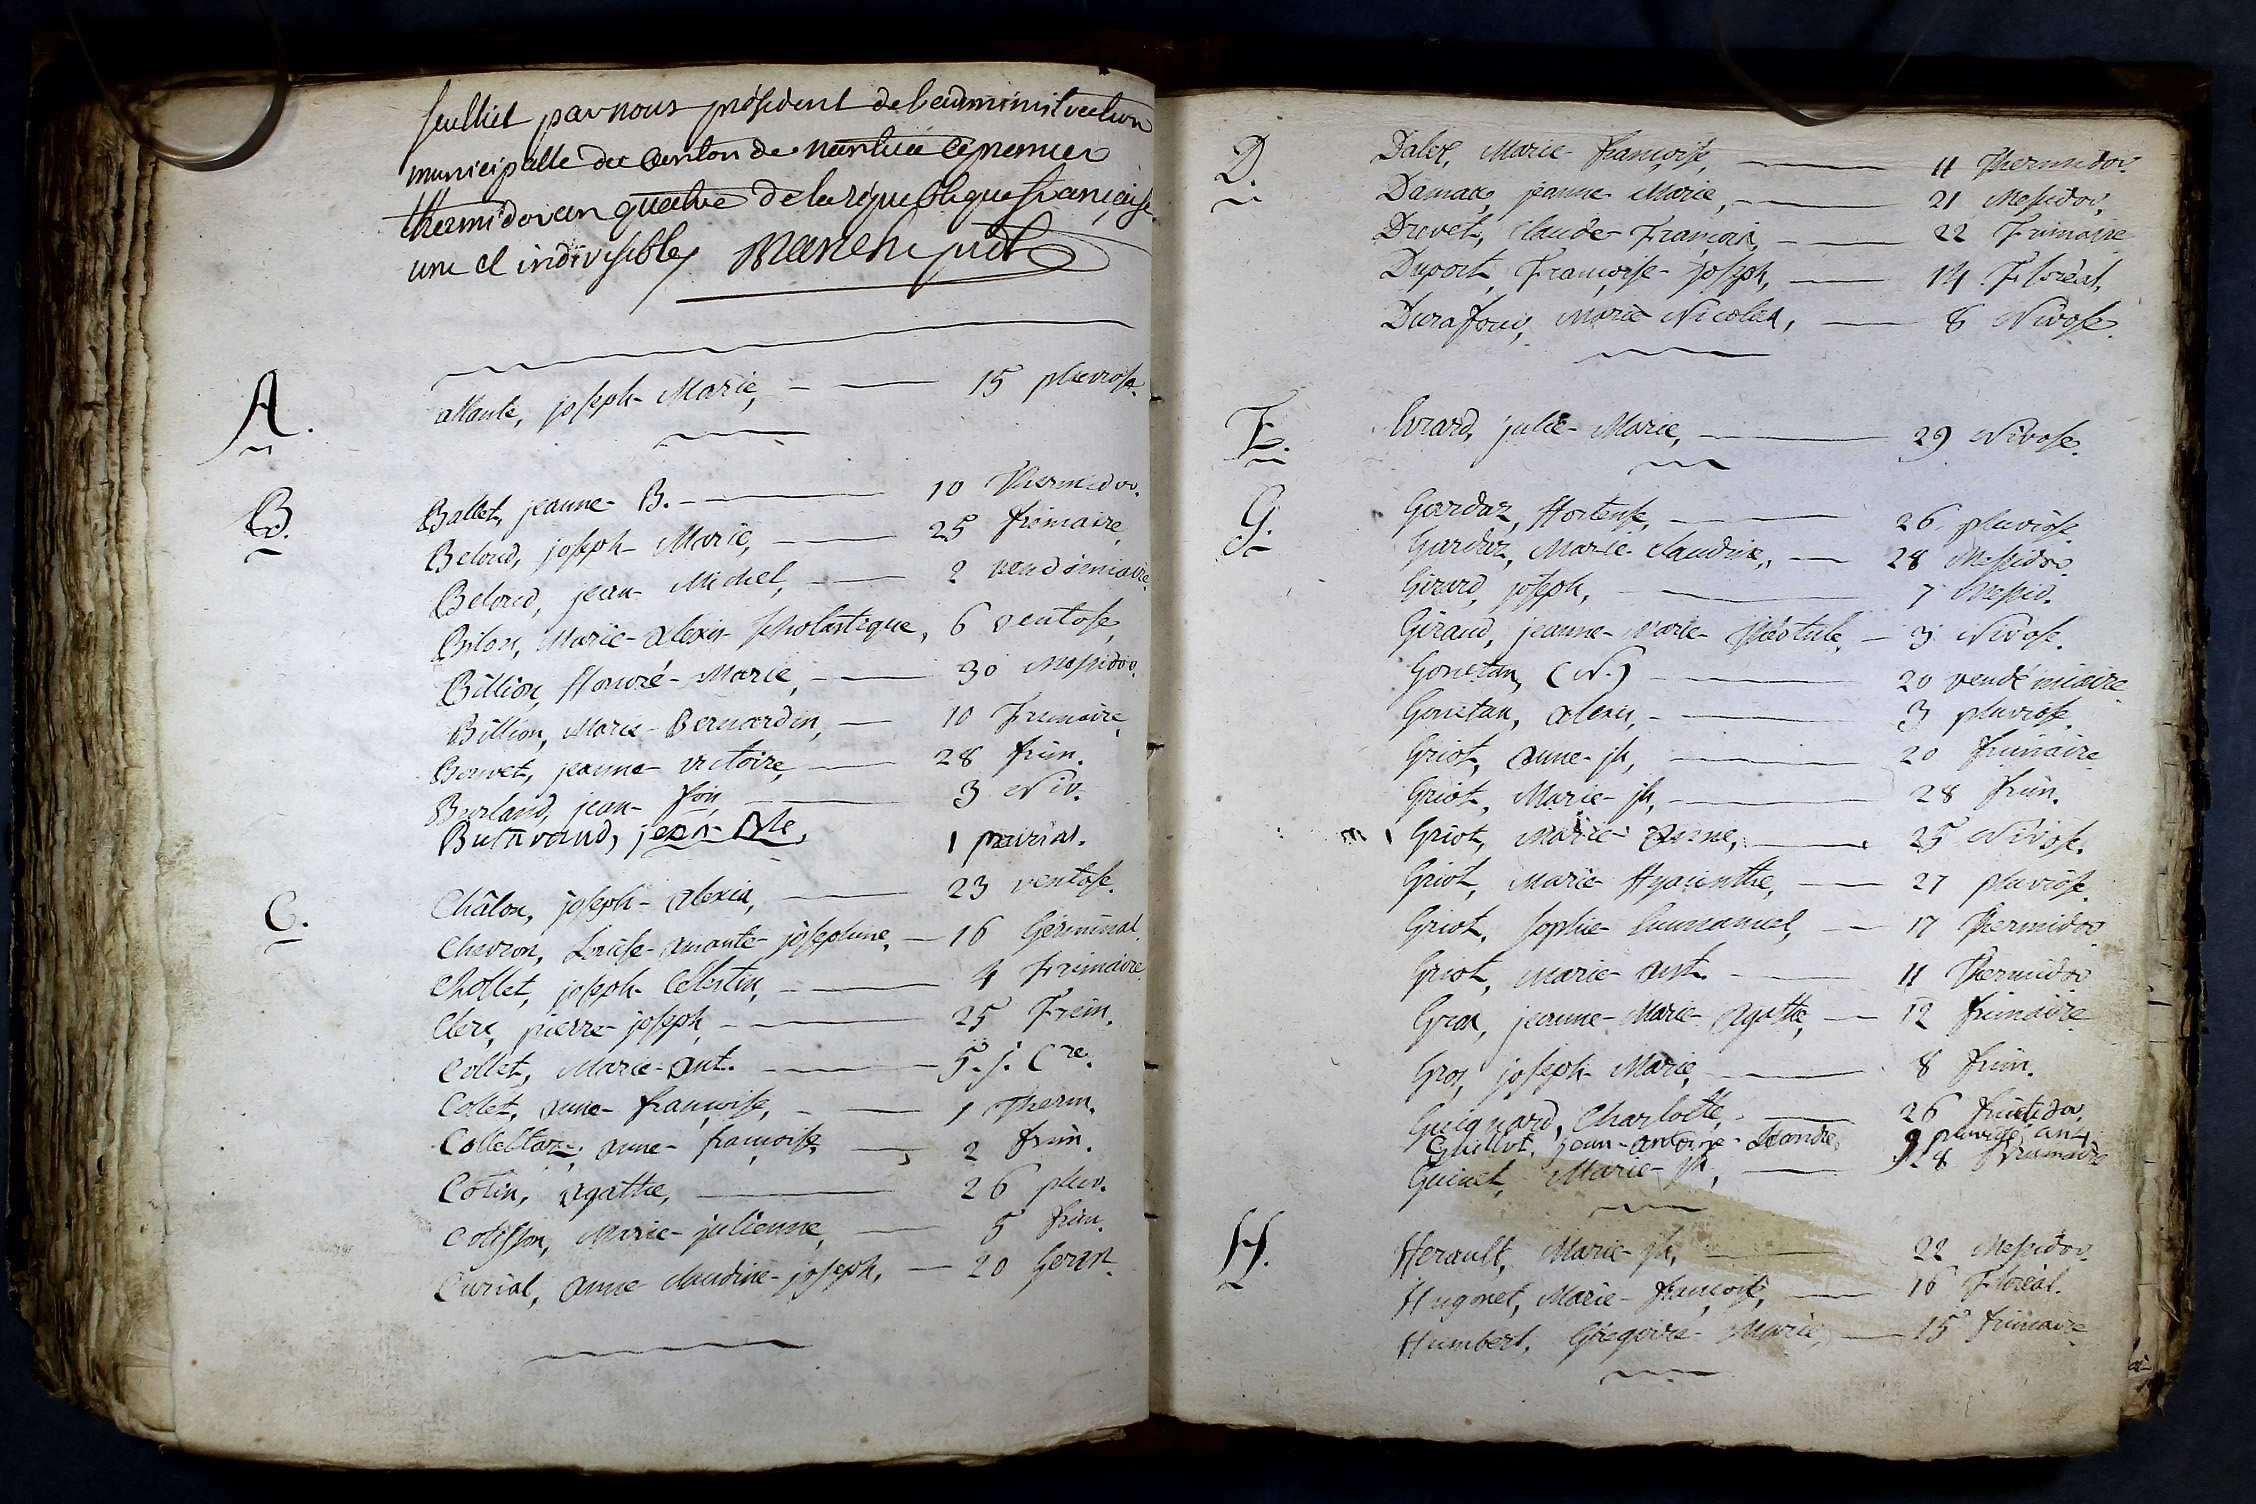 feulliet par nous président de l'administration
municipalle du canton de nantua ce premier
thermidor an quattre de la république française
une et indivisible
A.
allante, joseph-Marie, 15 pluviose.
B.
Ballet, jeanne-B. 10 Thermidor.
Beloud, joseph-Marie, 25 frimaire.
Beloud, jean-Michel, 2 vendémiaire
Bilon, Marie-alexis-scholastique, 6 ventose
Billion, Honoré-Marie, 30 Messidor.
Billion, Marie-Bernardin, 10 Frimaire
jeanne-victoire, 28 frim.
Burland, jean-fois, 3 Niv.
jean-Bte. 1 prairial.
C.
Châlon, joseph-alexis, 23 ventose.
Chevron, Louise-amante-joséphine, 16 Germinal.
Chollet, joseph-Célestin, 4 Frimaire
Clerc, pierre-joseph, 25 Frim.
Collet, Marie-ant. 5. j. Cre.
Collet, anne-françoise, 1 Therm.
Colletaz, anne-françoise 2 frim.
Cotin, agathe, 26 pluv.
Colisson, Marie-julienne, 5 frim.
Curial, anne claudine-joseph, 20 Germ.
D.
Marie-françoise, 11 Thermidor.
Damas, jeanne-Marie, 21 Messidor,
Drevet, Claude-François, 22 Frimaire
Duport, Françoise-joseph, 14 Floréal.
Durafour, Marie Nicolas, 8 Nivose.
E.
Evrard, julie-Marie, 29 Nivose.
G.
Gardaz, Hortense, 26 pluviose
Gardaz, Marie-claudine, 28 Messidor.
Girard, joseph, 7 Messid.
Giraud, jeanne-Marie- 3 Nivose.
Gonetan, (N.) 20 vendémiaire
Gonetan, alexis, 3 pluviose.
Griot, anne-jh, 20 frimaire
Griot, Marie-jh, 28 frim.
Griot, Marie-anne, 25 Nivose.
Griot, Marie-Hyacinthe, 27 pluviose
Griot, sophie-Emmanuel, 17 Thermidor
Griot, Marie-ant. 11 Thermidor
Gros, jeanne-Marie-agathe, 12 frimaire
Gros, joseph-Marie, 8 frim.
Guignard, Charlotte, 26 fructidor,
Guillot, jean-antoine-Léandre, 9 pluviose an 4.
Guinet, Marie-jh, 28 frimaire
H.
Herault, Marie-jh, 22 Messidor.
Hugonet, Marie-françoise, 16 Floréal.
Humbert, Grégoire-Marie, 15 frimaire